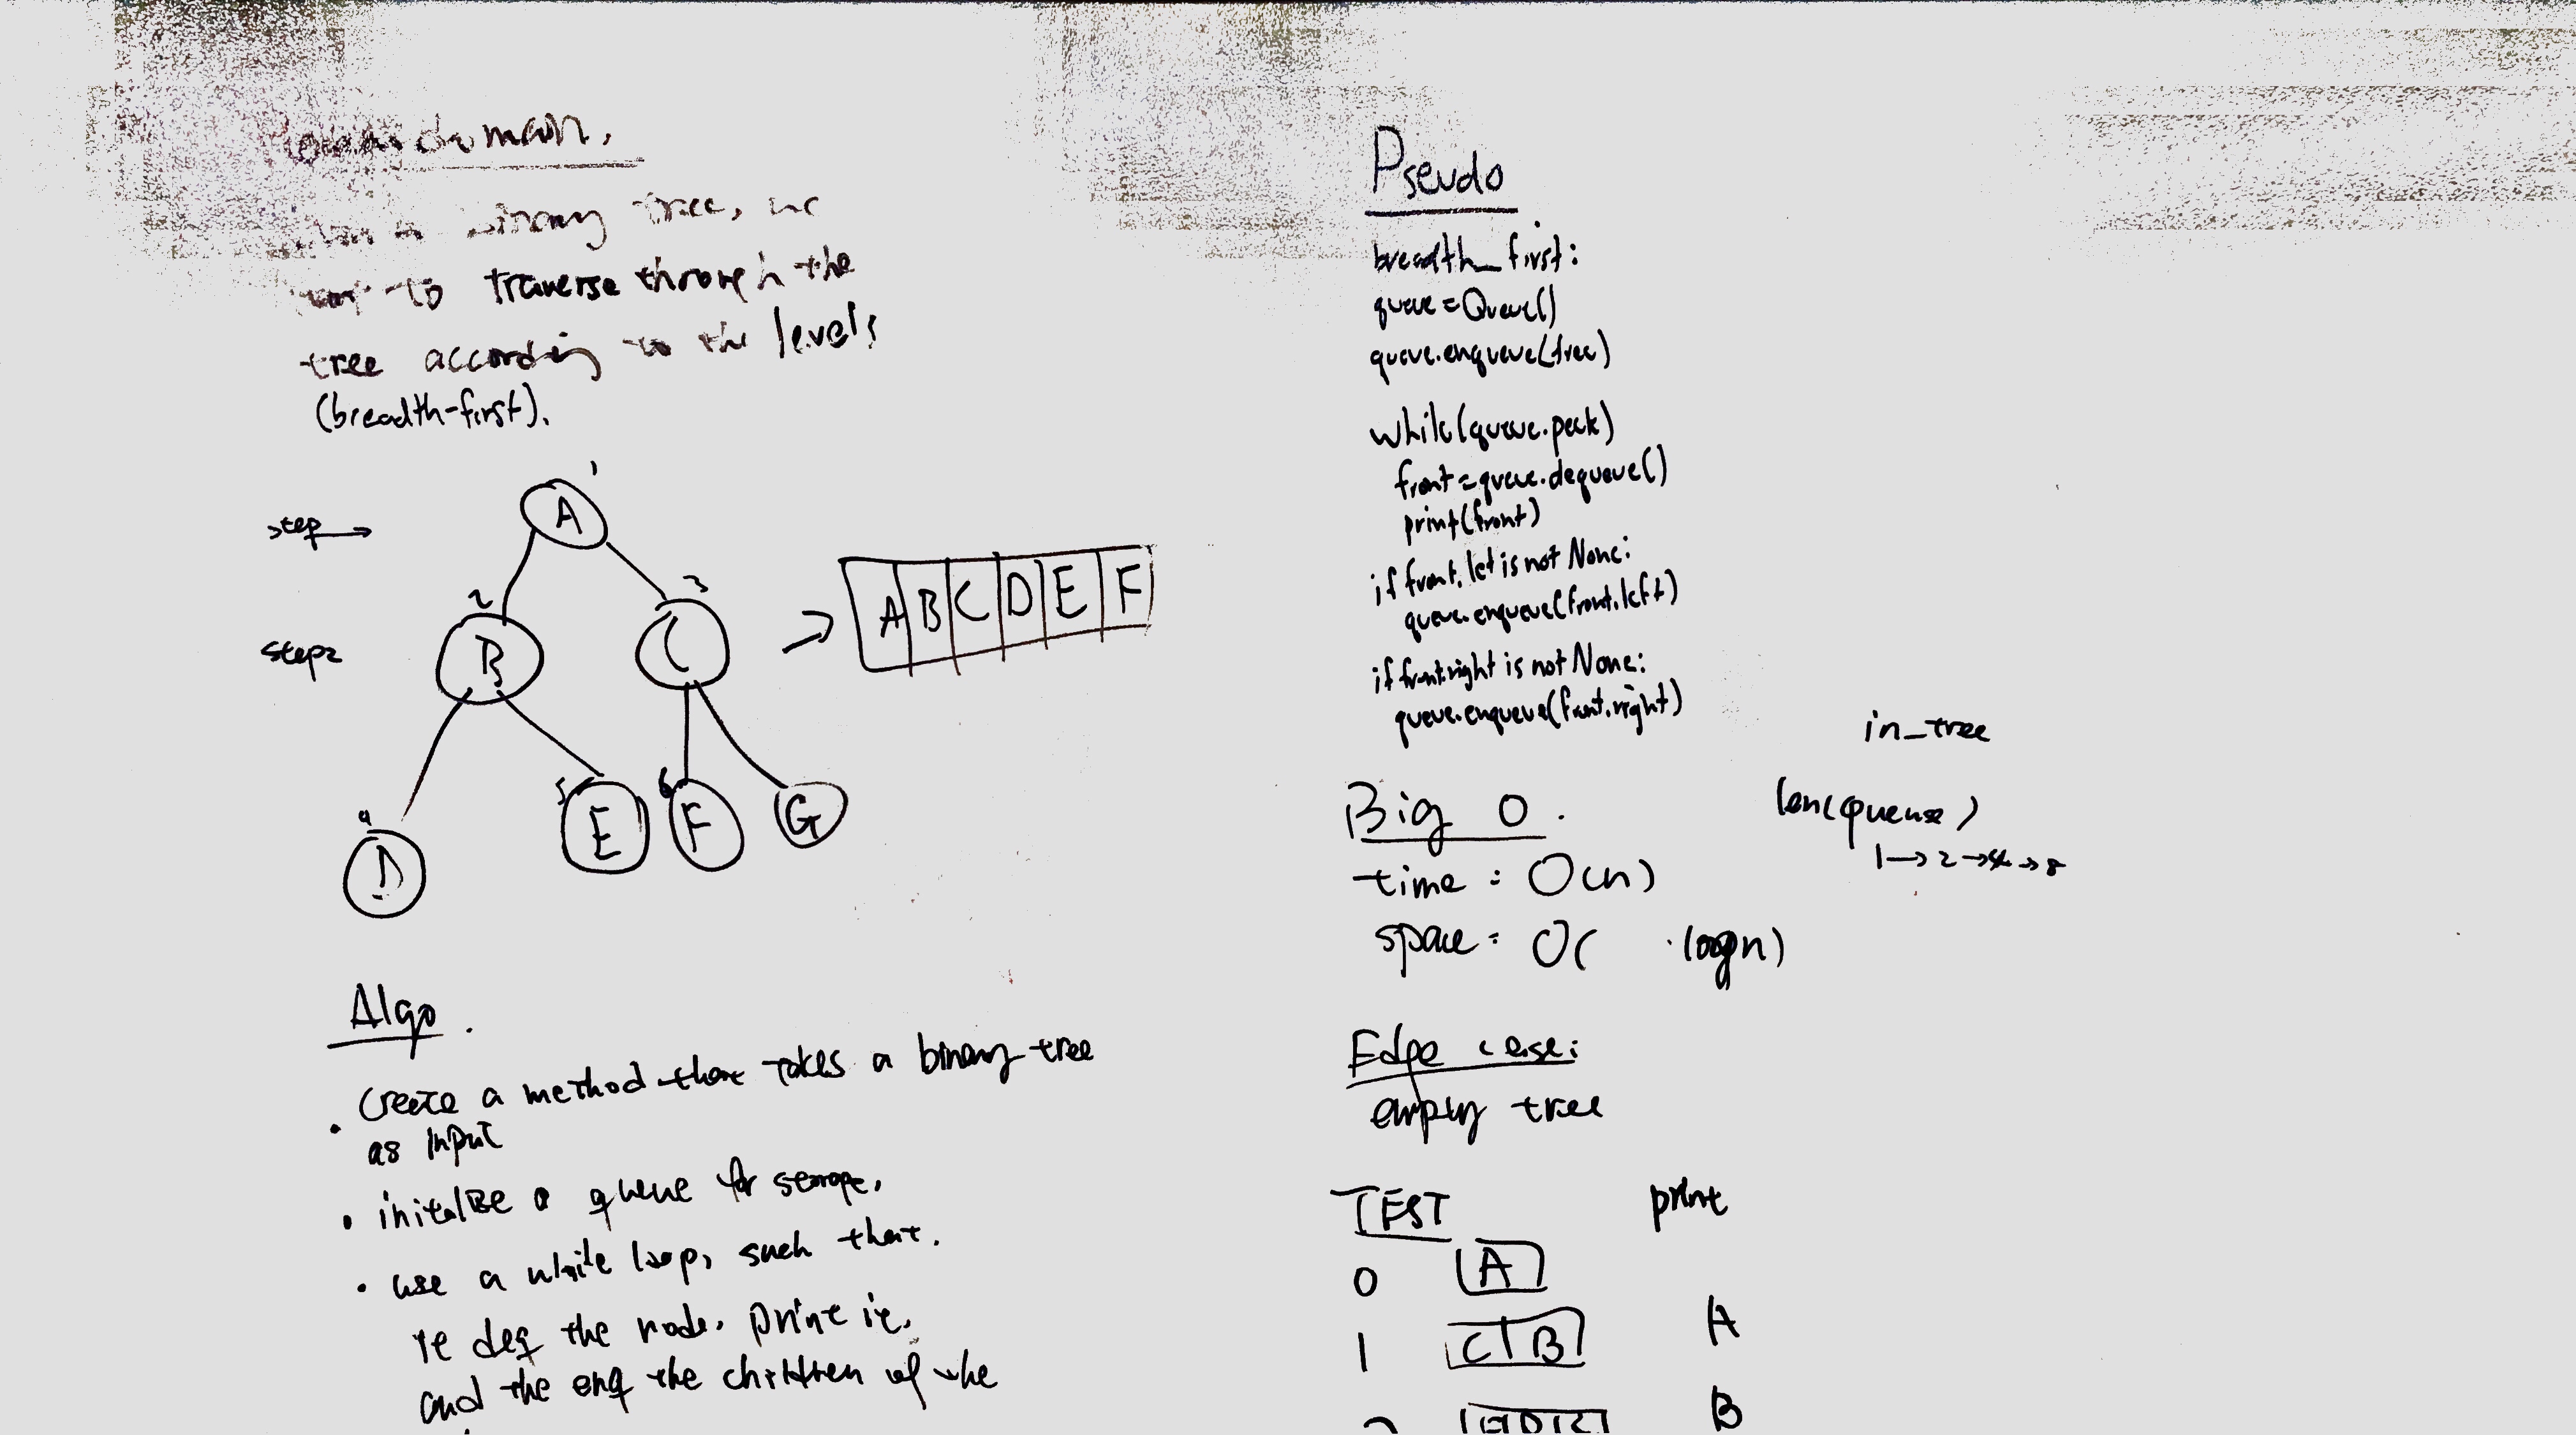 domain.
binary tree, we
to traverse through the
tree according to the levels
(breadth-first).
step
step2
1
A
2
B
3
C
4
D
5
E
6
F
G
A B C D E F
Algo.
• Create a method that takes a binary tree
as input
• initalize a queue for storage.
• use a while loop, such that.
deq the node. print it.
and the enq the children of the
Pseudo
breadth_first:
queue = Queue()
queue.enqueue(tree)
while(queue.peek)
front = queue.dequeue()
print(front)
if front.let is not None:
queue.enqueue(front.left)
if front.right is not None:
queue.enqueue(front.right)
in_tree
len(queue)
1 → 2 → 4 → 8
Big O.
time : O(n)
space : O( logn)
Edge case:
empty tree
TEST print
0 A
1 C B A
B